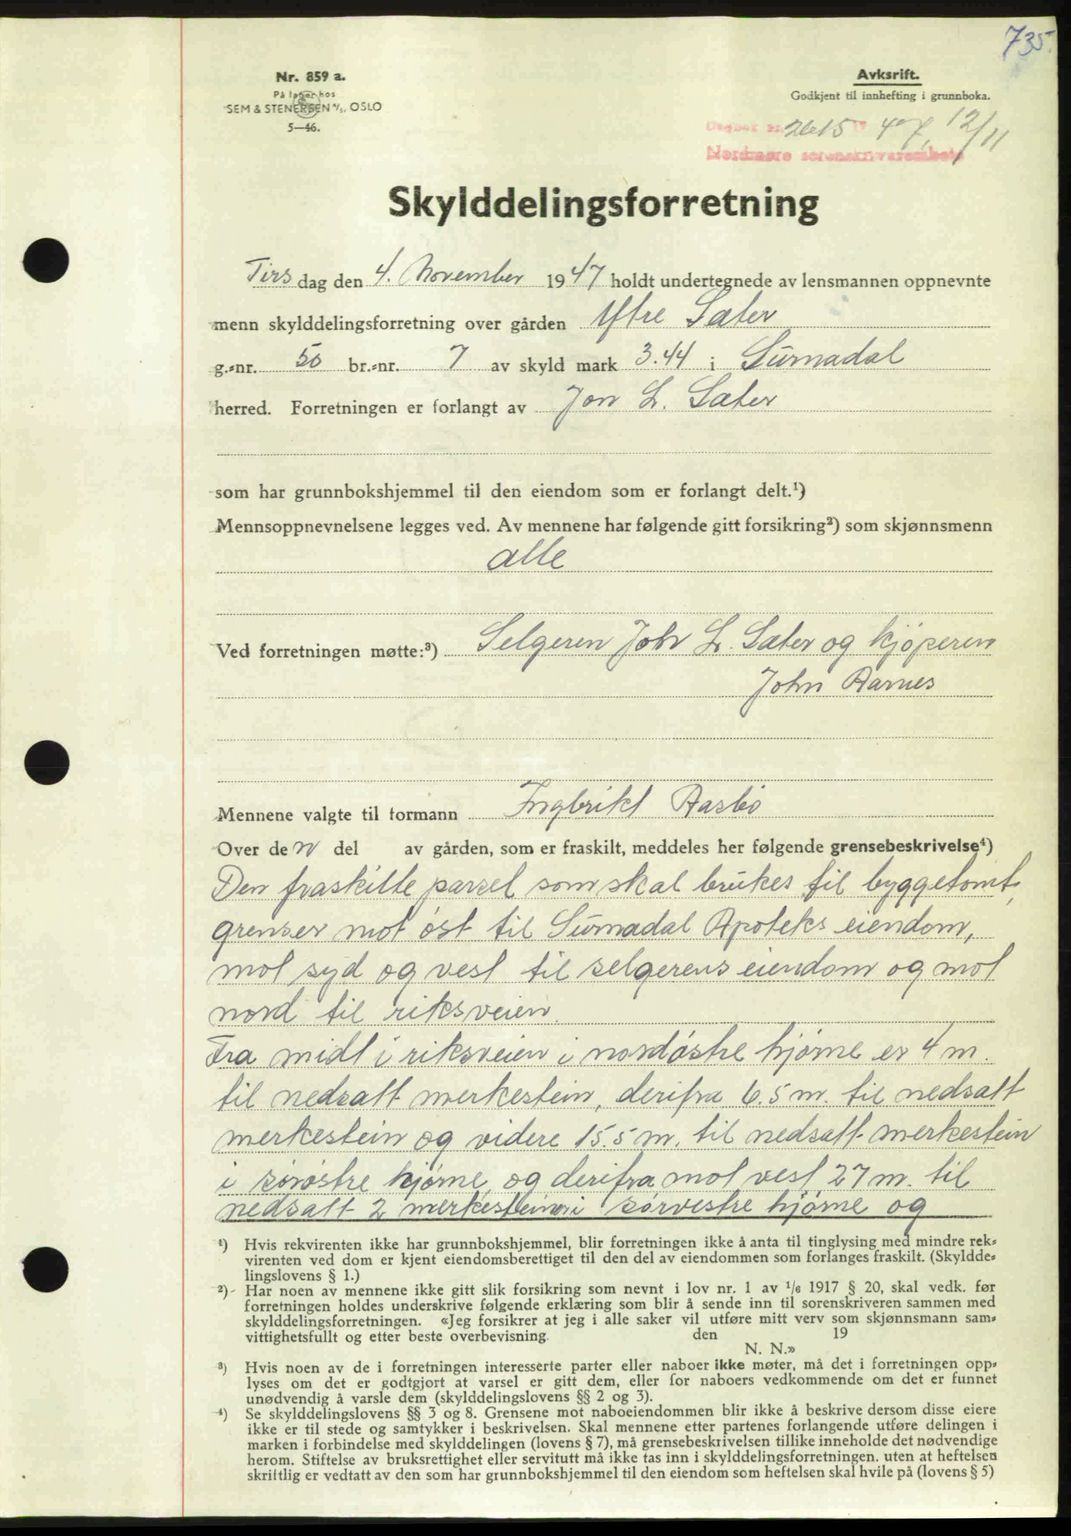 735.
Nr. 859 a.
På lager hos
SEM & STENERSEN A/S, OSLO
5—46.
Avksrift.
Godkjent til innhefting i grunnboka.
Dagbok nr. 2615 47, 12/11
Nordmøre sorenskriverembete
Skylddelingsforretning
Tirsdag den 4. November 1947 holdt undertegnede av lensmannen oppnevnte
menn skylddelingsforretning over gården Ytre Sæter
g.-nr. 50 br.-nr. 7 av skyld mark 3.44 i Surnadal
herred. Forretningen er forlangt av Jon L. Sæter
som har grunnbokshjemmel til den eiendom som er forlangt delt.¹)
Mennsoppnevnelsene legges ved. Av mennene har følgende gitt forsikring²) som skjønnsmenn
alle
Ved forretningen møtte:³) Selgeren John L. Sæter og kjøperen
John Aarnes
Mennene valgte til formann Ingbrikt Aasbø
Over den del av gården, som er fraskilt, meddeles her følgende grensebeskrivelse⁴)
Den fraskilte parsel som skal brukes til byggetomt,
grenser mot øst til Surnadal Apoteks eiendom,
mot syd og vest til selgerens eiendom og mot
nord til riksveien.
Fra midt i riksveien i nordøstre hjørne er 4 m.
til nedsatt merkestein, derifra 6.5 m. til nedsatt
merkestein og videre 15.5 m. til nedsatt merkestein
i sørøstre hjørne og derifra mot vest 27 m. til
nedsatt 2 merkesteiner i sørvestre hjørne og
¹) Hvis rekvirenten ikke har grunnbokshjemmel, blir forretningen ikke å anta til tinglysing med mindre rek-
virenten ved dom er kjent eiendomsberettiget til den del av eiendommen som forlanges fraskilt. (Skyldde-
lingslovens § 1.)
²) Har noen av mennene ikke gitt slik forsikring som nevnt i lov nr. 1 av 1/6 1917 § 20, skal vedk. før
forretningen holdes underskrive følgende erklæring som blir å sende inn til sorenskriveren sammen med
skylddelingsforretningen. «Jeg forsikrer at jeg i alle saker vil utføre mitt verv som skjønnsmann sam-
vittighetsfullt og etter beste overbevisning. den 19
N. N.»
³) Hvis noen av de i forretningen interesserte parter eller naboer ikke møter, må det i forretningen opp-
lyses om det er godtgjort at varsel er gitt dem, eller for naboers vedkommende om det er funnet
unødvendig å varsle dem (skylddelingslovens §§ 2 og 3).
⁴) Se skylddelingslovens §§ 3 og 8. Grensene mot naboeiendommen blir ikke å beskrive dersom disse eiere
ikke er til stede og samtykker i beskrivelsen. Skal mennene etter partenes forlangende utføre delingen i
marken i forbindelse med skylddelingen (lovens § 7), må grensebeskrivelsen tillike inneholde det nødvendige
herom. Stiftelse av bruksrettighet eller servitutt må ikke tas inn i skylddelingsforretningen. uten at heftelsen
skriftlig er vedtatt av den som har grunnbokshjemmel til den eiendom som heftelsen skal hvile på (lovens § 5)